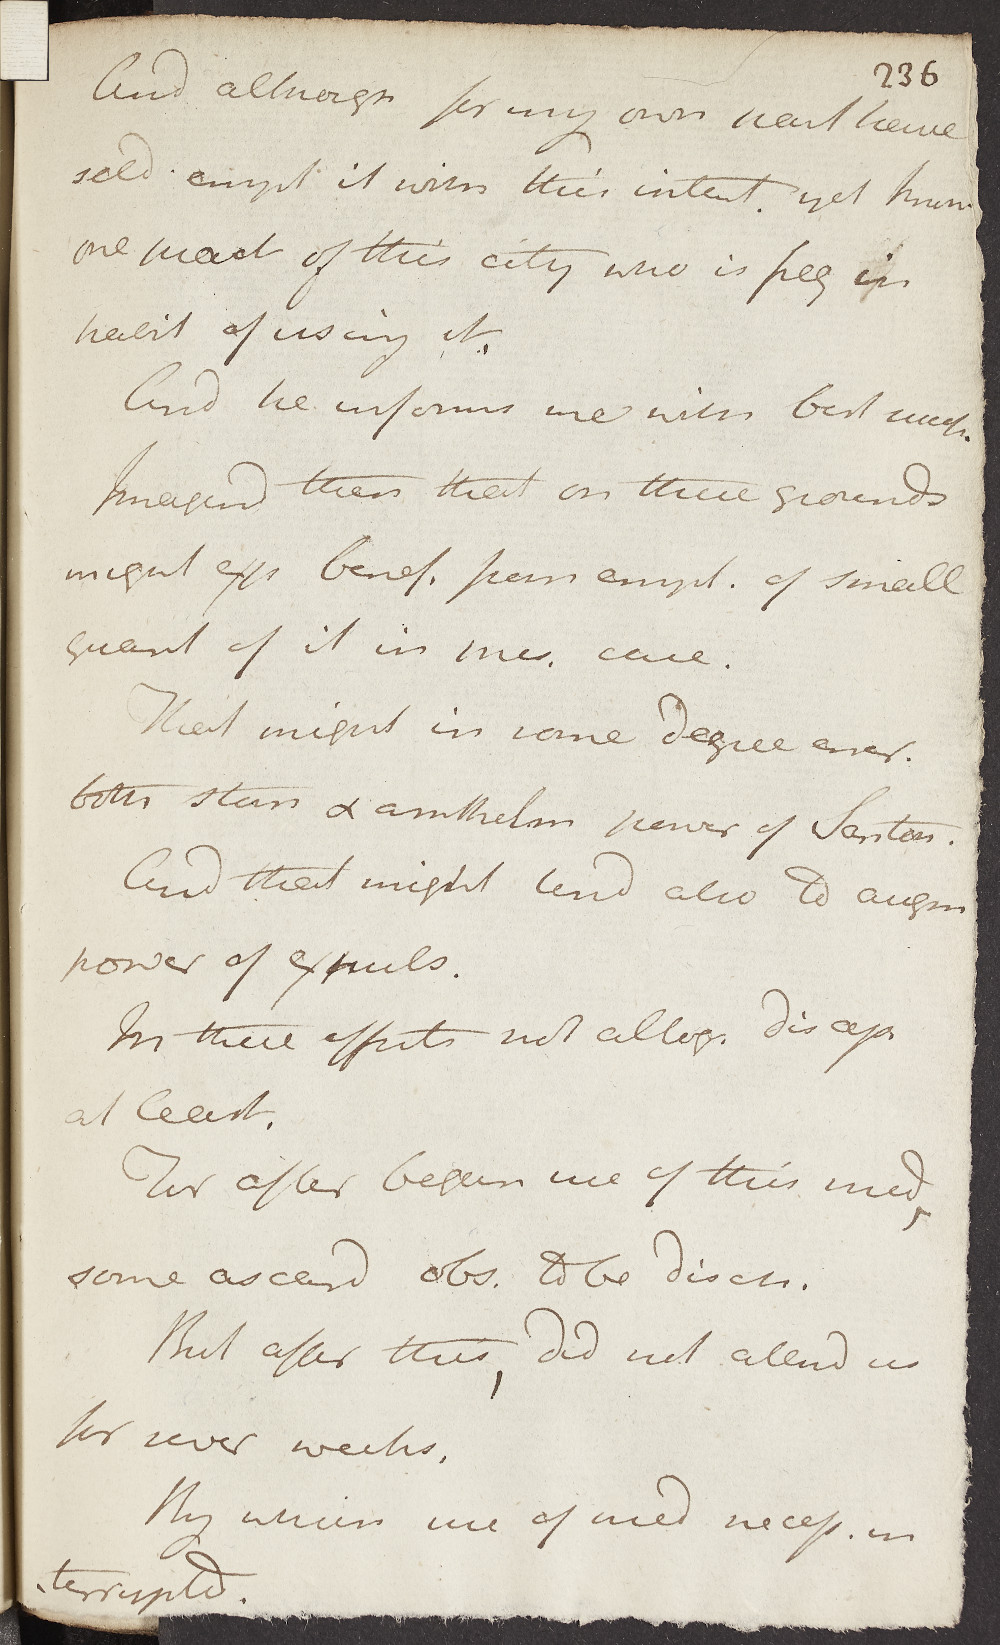 236
And although for my own part have
seld. empt it with this intent. yet know
one pract of this city who is freq in
habit of using it.
And he informs me with best succs.
Imagind then that on these grounds
might exp benef. from empt. of small
quant of it in pres. case.
That might in some degree
both stim & anthelm power of Santon.
And that might tend also to augm
power of expuls.
In these effects not alltog. disap
at least.
For after begun use of this med,
some ascarid obs. to be disch.
But after this, did not attend us
for sever weeks.
By which use of med necess. in
terrupted.